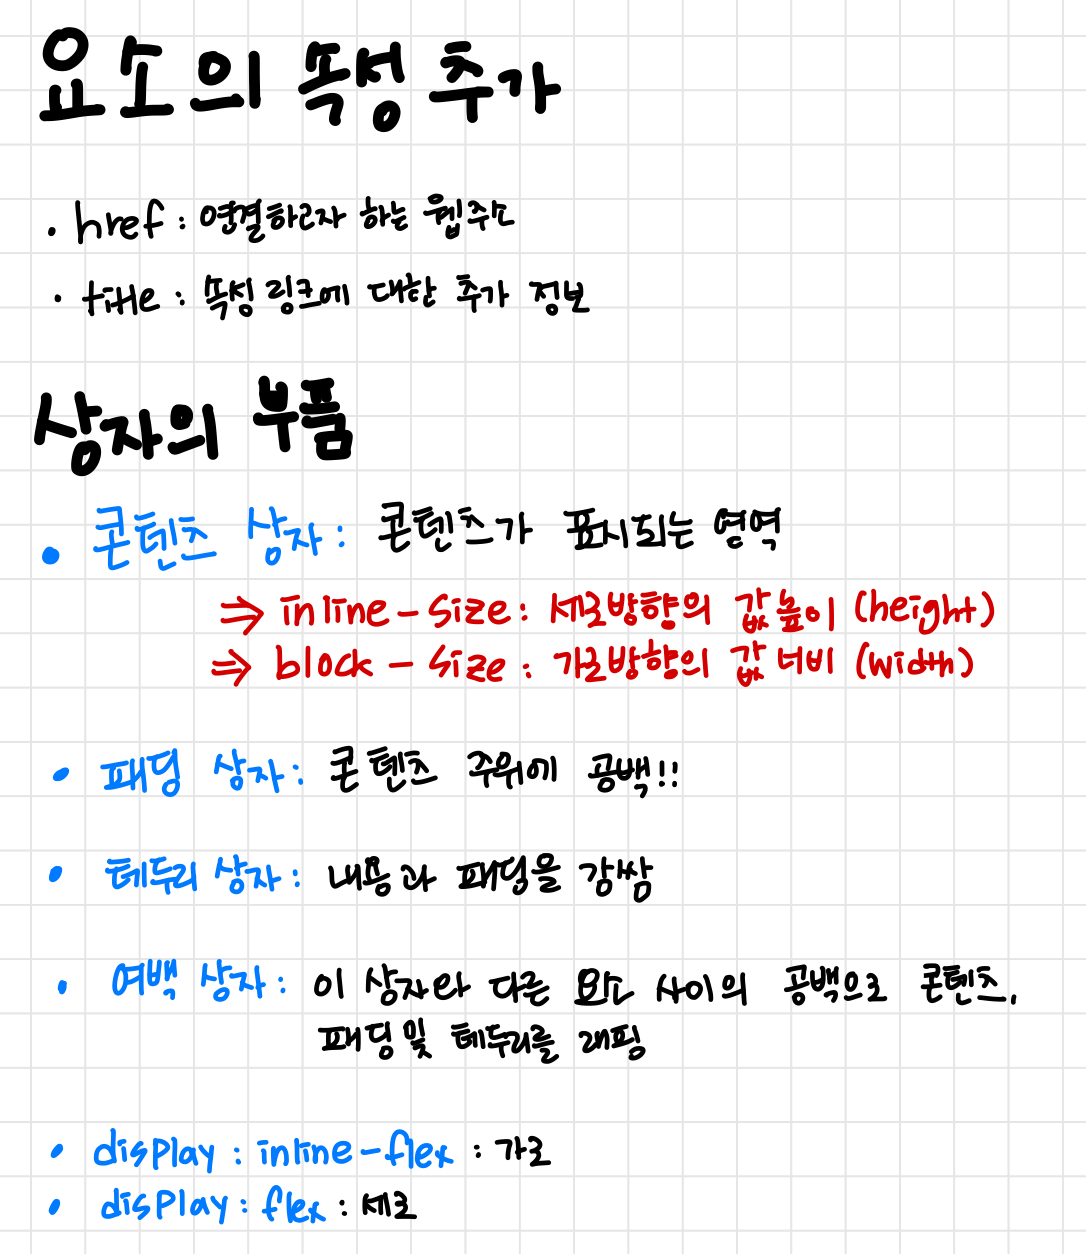 요소의 속성 추가
· href : 연결하고자 하는 웹주소
· title : 속성 링크에 대한 추가 정보
상자의 부품
• 콘텐츠 상자 : 콘텐츠가 표시되는 영역
⇒ inline-size : 세로방향의 값 높이 (height)
⇒ block-size : 가로방향의 값 너비 (width)
• 패딩 상자 : 콘텐츠 주위에 공백!!
• 테두리 상자 : 내용과 패딩을 감쌈
• 여백 상자 : 이 상자와 다른 요소 사이의 공백으로 콘텐츠,
패딩 및 테두리를 래핑
• display : inline-flex : 가로
• display : flex : 세로